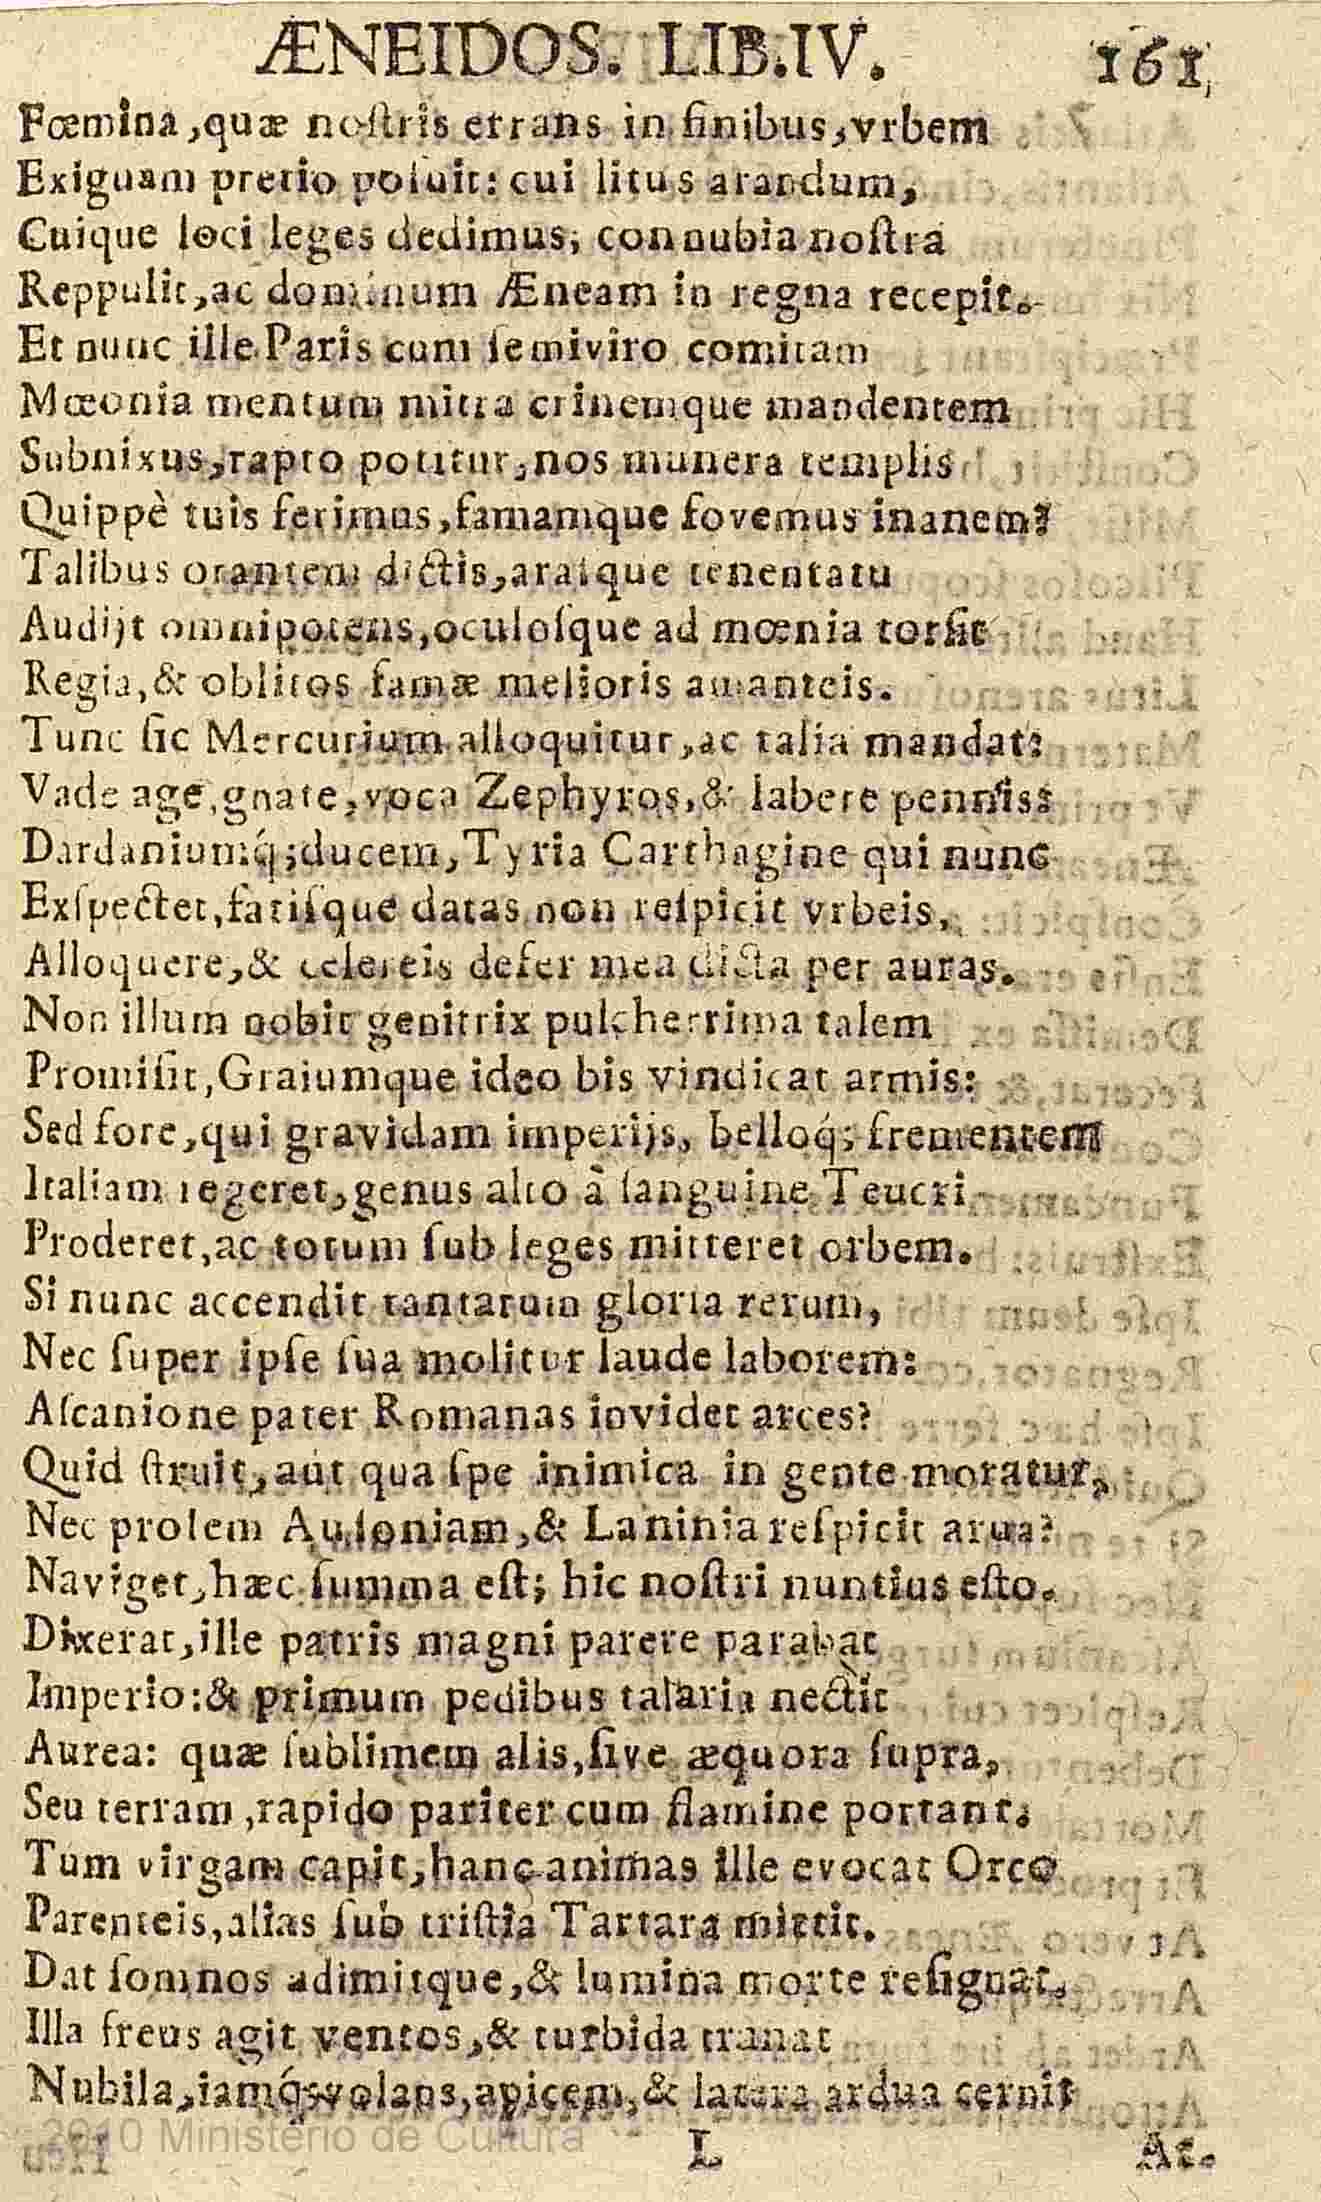 ÆNEIDOS. LIB.IV. 161
Fœmina,quæ noſtris errans in finibus,vrbem
Exiguam pretio poſuit: cui litus arandum,
Cuique loci leges dedimus; connubia noſtra
Reppulit,ac dominum Æneam in regna recepit.
Et nunc ille Paris cum ſemiviro comitatu
Mœonia mentum mitra crinemque mandentem
Subnixus,rapto potitur,nos munera templis
Quippè tuis ferimus,famamque fovemus inanem?
Talibus orantem dictis,araſque tenentatu
Audijt omnipotens,oculoſque ad mœnia torſit
Regia,& oblitos famæ melioris amanteis.
Tunc ſic Mercurium alloquitur,ac talia mandat:
Vade age,gnate,voca Zephyros,& labere pennis:
Dardaniumq́;ducem,Tyria Carthagine qui nunc
Exſpectet,fatiſque datas non reſpicit vrbeis,
Alloquere,& celereis defer mea dicta per auras.
Non illum nobit genitrix pulcherrima talem
Promiſit,Graiumque ideo bis vindicat armis:
Sed fore,qui gravidam imperijs, belloq́; frementem
Italiam regeret,genus alto â ſanguine Teucri
Proderet,ac totum ſub leges mitteret orbem.
Si nunc accendit tantarum gloria rerum,
Nec ſuper ipſe ſua molitur laude laborem:
Aſcanione pater Romanas invidet arces?
Quid ſtruit,aut qua ſpe inimica in gente moratur,
Nec prolem Auſoniam,& Laninia reſpicit arua?
Naviget,hæc ſumma eſt; hic noſtri nuntius eſto.
Dixerat,ille patris magni parere parabat
Imperio:& primum pedibus talaria nectit
Aurea: quæ ſublimem alis,ſive æquora ſupra,
Seu terram,rapido pariter cum flamine portant.
Tum virgam capit,hanc animas ille evocat Orco
Parenteis,alias ſub triſtia Tartara mittit.
Dat ſomnos adimitque,& lumina morte reſignat.
Illa freus agit ventos,& turbida tranat
Nubila,iamq́;volans,apicem,& latera ardua cernit
L At.
2010 Ministério de Cultura